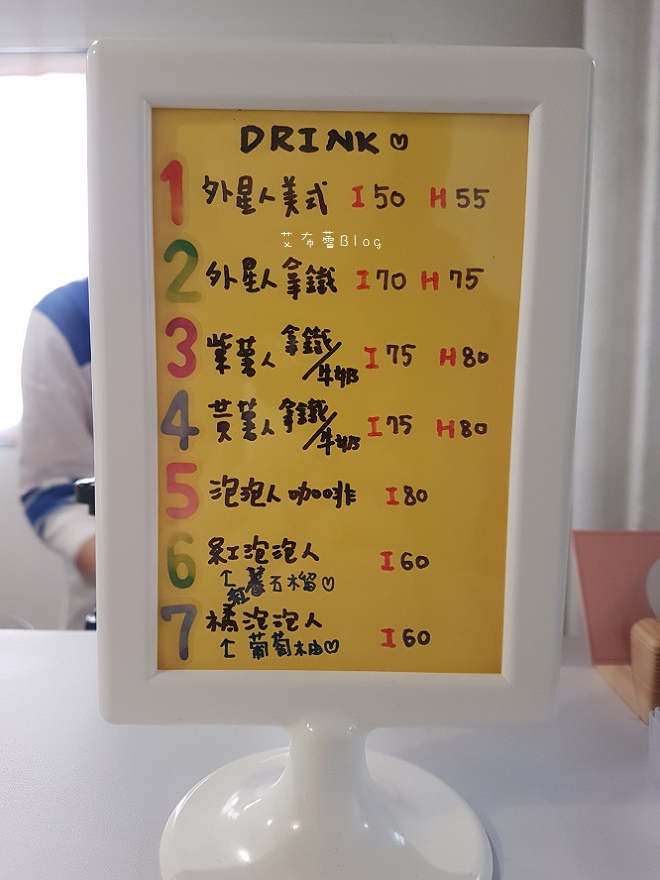 DRINK
1 外星人美式 I 50 H 55
艾布蕾Blog
2 外星人拿鐵 I 70 H 75
3 紫薯人拿鐵/牛奶 I 75 H 80
4 黃薯人拿鐵/牛奶 I 75 H 80
5 泡泡人咖啡 I 80
6 紅泡泡人 I 60
↑ 紅蕃石榴
7 橘泡泡人 I 60
↑ 葡萄柚